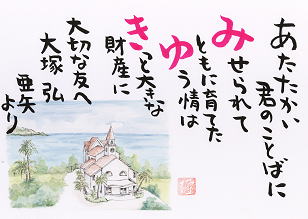 あたたかい
君のことばに
みせられて
ともに育てた
ゆう情は
きっと大きな
財産に
大切な友へ
大塚 弘
亜矢
より